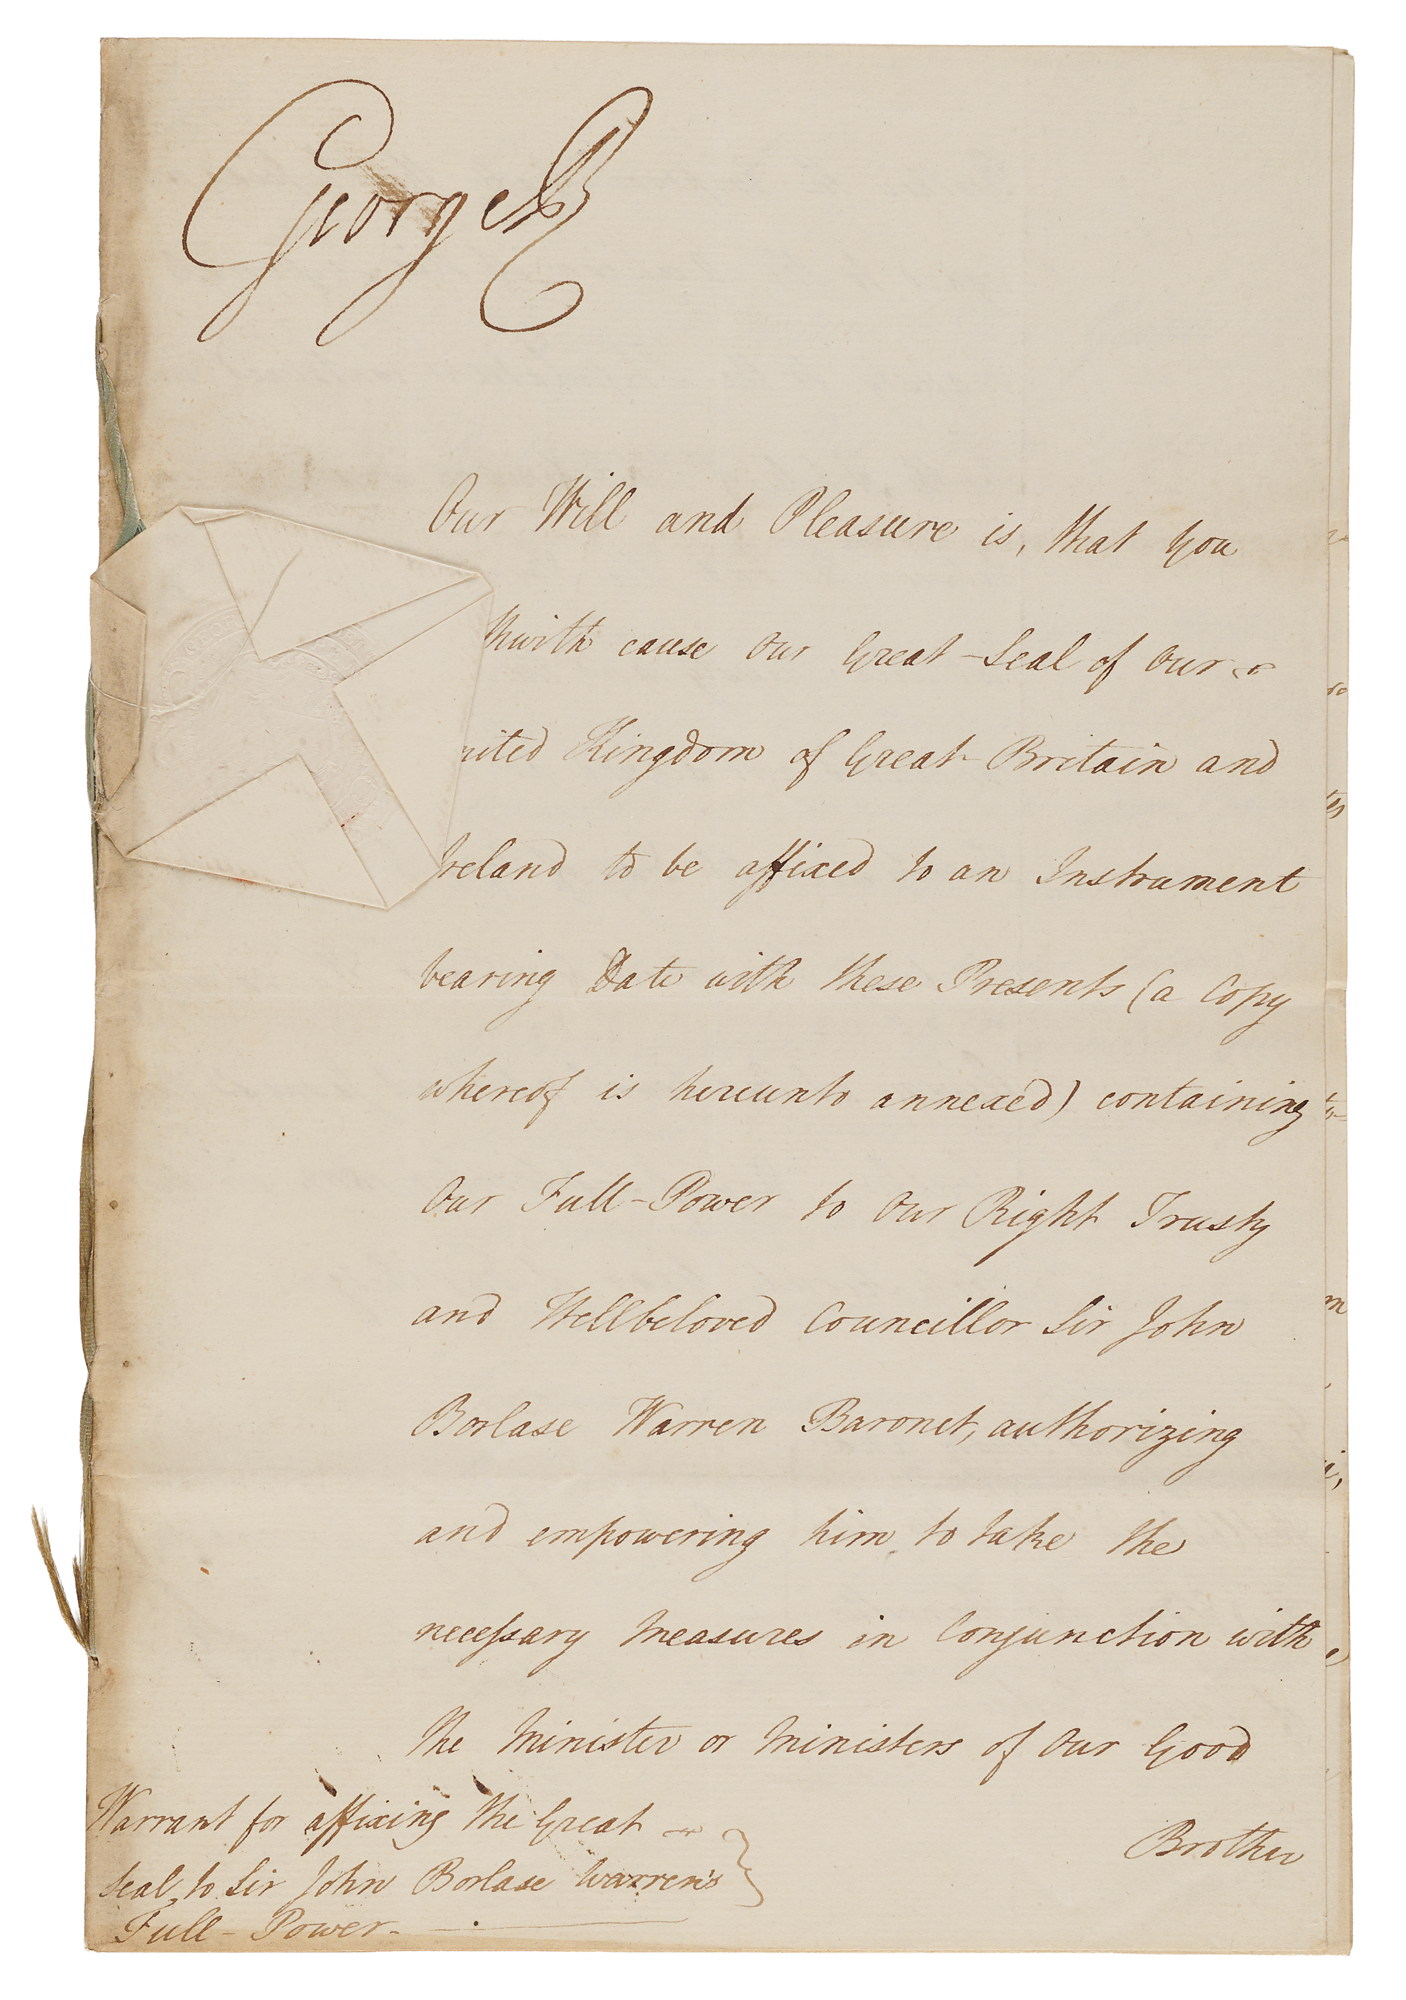 George R
Our Will and Pleasure is, that you
thwith cause our Great Seal of Our
nited Kingdom of Great Britain and
Ireland to be affixed to an Instrument
bearing Date with these Presents (a Copy
whereof is hereunto annexed) containing
Our Full-Power to Our Right Trusty
and Wellbeloved Councillor Sir John
Borlase Warren Baronet, authorizing
and empowering him to take the
necessary Measures in Conjunction with
the Minister or Ministers of Our Good
Brother
Warrant for affixing the Great
Seal to Sir John Borlase Warren's
Full-Power.